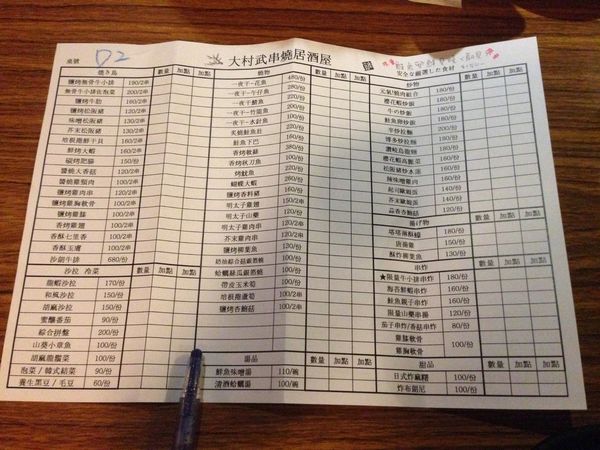 桌號 D2
大村武串燒居酒屋
安全な厳選した食材
焼き鳥 數量 加點 加點
鹽烤無骨牛小排 190/2串
無骨牛小排佐泡菜 200/2串
鹽烤牛肋 160/2串
鹽烤松阪豬 120/2串
味噌松阪豬 130/2串
芥末松阪豬 130/2串
培根捲鮮干貝 160/2串
鮮烤大蝦 160/2串
碳烤肥腸 150/份
醬燒大香菇 120/2串
醬燒雞頸肉 100/2串
鹽烤雞肉串 120/2串
鹽烤雞胸軟骨 100/2串
鹽烤雞腿 100/2串
香烤雞翅 100/2串
香酥七里香 100/2串
香酥玉膚 100/2串
沙朗牛排 680/份
沙拉 冷菜 數量 加點 加點
龍蝦沙拉 170/份
和風沙拉 150/份
胡麻沙拉 150/份
蜜釀番茄 90/份
綜合拼盤 200/份
山葵小章魚 100/份
胡麻龍鬚菜 100/份
泡菜 / 韓式結菜 90/份
養生黑豆 / 毛豆 60/份
燒物 數量 加點 加點
一夜干-花魚 480/份
一夜干-午仔魚 280/份
一夜干鯖魚 200/份
一夜干-竹筴魚 200/份
一夜干-水針魚
炙燒鮭魚肚
鮭魚下巴
香烤軟絲 380/份
香烤秋刀魚 100/份
烤魷魚
蝴蝶大蝦 260/份
鹽烤香料豬 160/份
明太子雞翅 150/2串
明太子山藥 120/份
芥末雞肉串 120/2串
鹽烤柳葉魚 120/份
奶油綜合菇銀箔燒 100/份
蛤蠣絲瓜銀箔燒 100/份
帶皮玉米筍 100/份
培根捲蘆筍 100/2串
鹽烤香鮑菇 100/份
湯品 數量 加點 加點
鮮魚味噌湯 110/碗
清酒蛤蠣湯 100/碗
炒物 數量 加點 加點
元氣!燒肉組合 180/份
櫻花蝦炒飯 180/份
牛の炒飯 180/份
鮭魚卵炒飯 180/份
辛炒拉麵 200/份
博多炒拉麵 180/份
讚岐烏龍麵 180/份
櫻花蝦高麗菜 150/份
松阪豬炒水蓮 160/份
辣味噌雞肉 160/份
起司軟嫩蛋 140/份
芥末軟嫩蛋 140/份
蒜香杏鮑菇
揚げ物 數量 加點 加點
塔塔佩酥蠔 180/份
唐揚雞 150/份
酥炸柳葉魚 130/份
串炸 數量 加點 加點
★限量牛小排串炸 180/份
海苔鮮蝦串炸 160/份
鮭魚親子串炸 160/份
限量山藥串揚 160/份
茄子串炸/香菇串炸 90/份
雞腿軟骨
雞胸軟骨 100/份
甜品 數量 加點 加點
日式炸麻糬 100/份
炸布朗尼 100/份